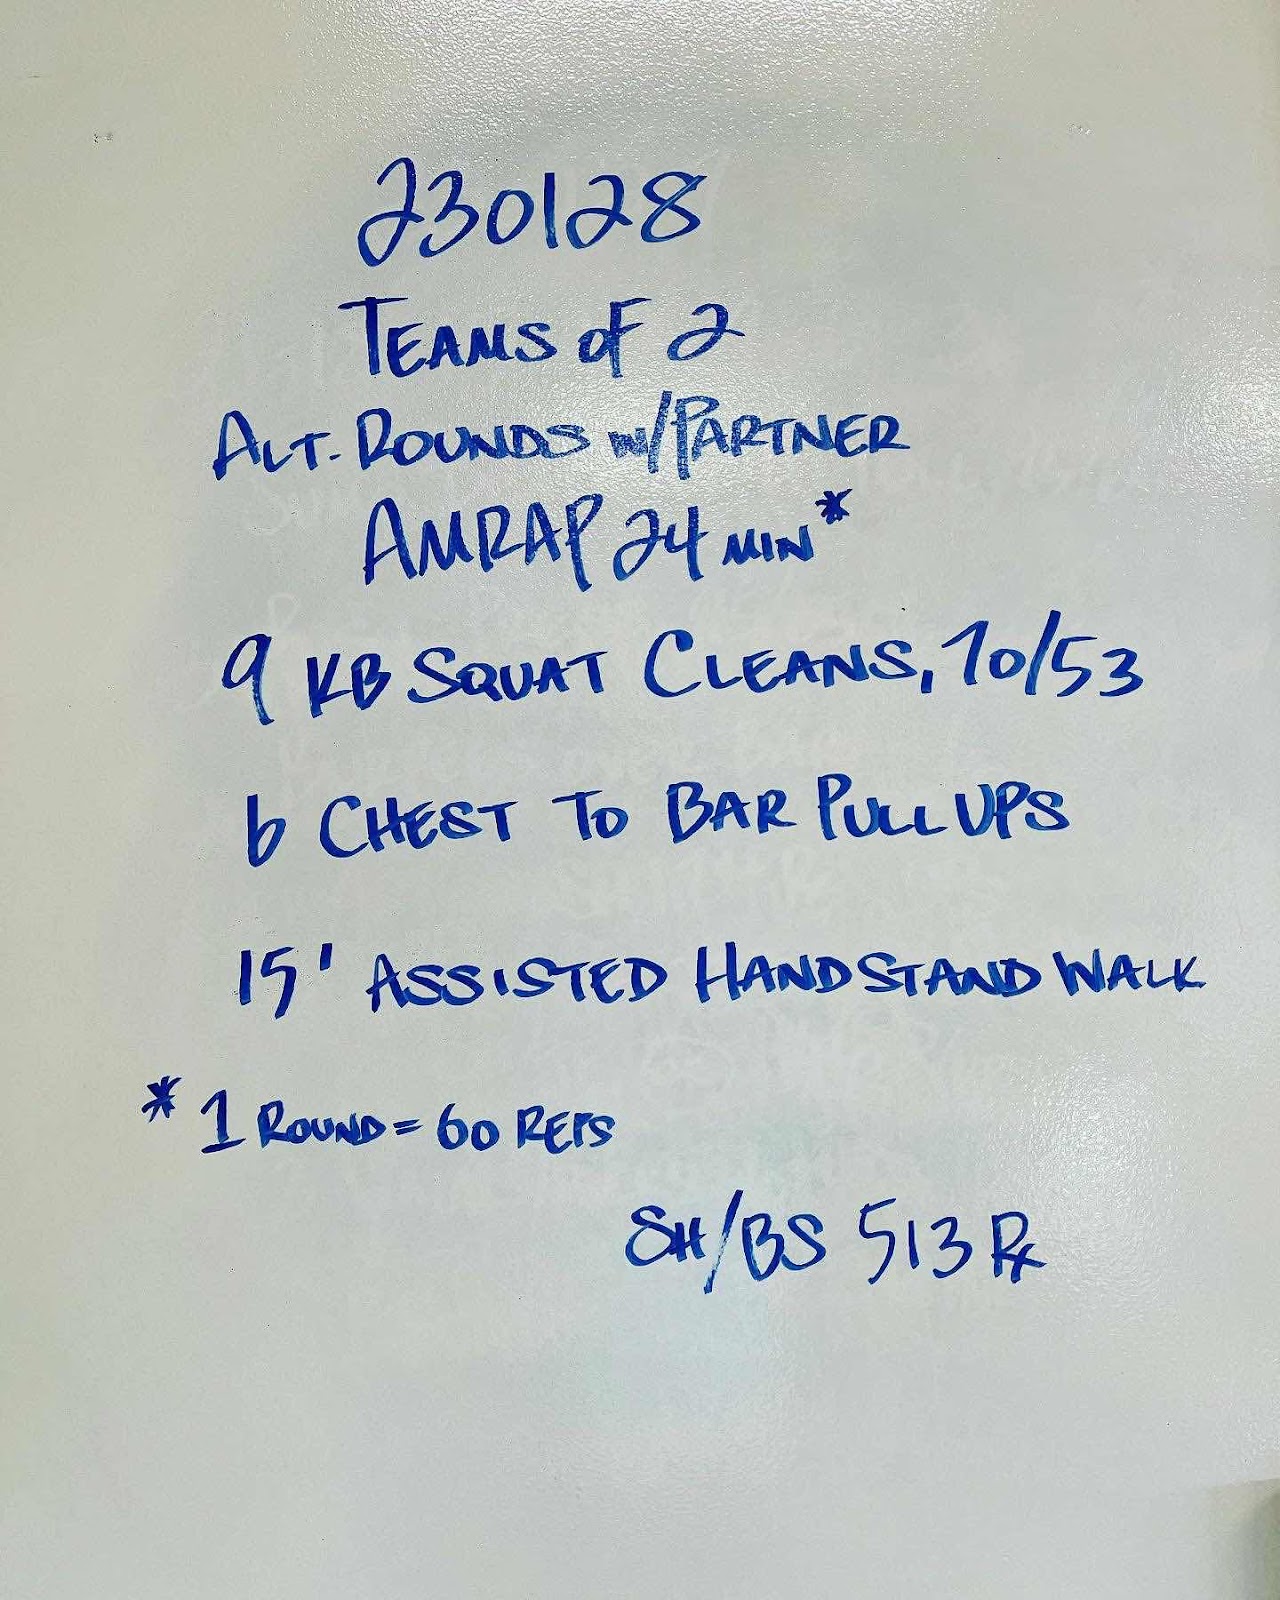 230128
TEAMS OF 2
ALT. ROUNDS W/PARTNER
AMRAP 24 MIN*
9 KB SQUAT CLEANS, 70/53
6 CHEST TO BAR PULL UPS
15' ASSISTED HANDSTAND WALK
* 1 ROUND = 60 REPS
SH/BS 513 Rx